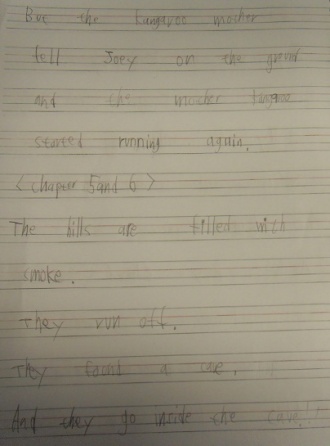 But the kangaroo mother
fell Joey on the
and the mother
started running again.
< chapter 5 and 6 >
The hills are filled with
smoke.
They run off.
They found a cave.
And they go inside the cave!